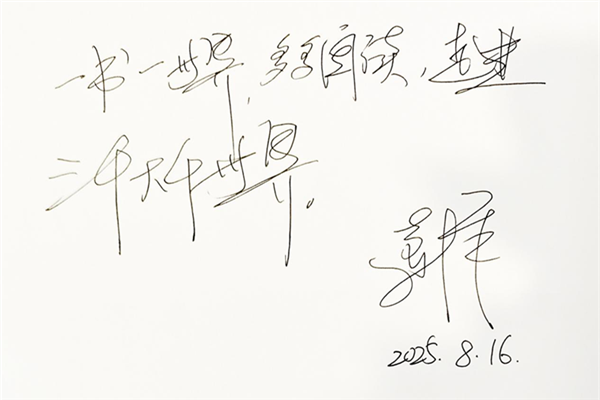 一书一世界,多多阅读,走进
三千大千世界。
2025.8.16.